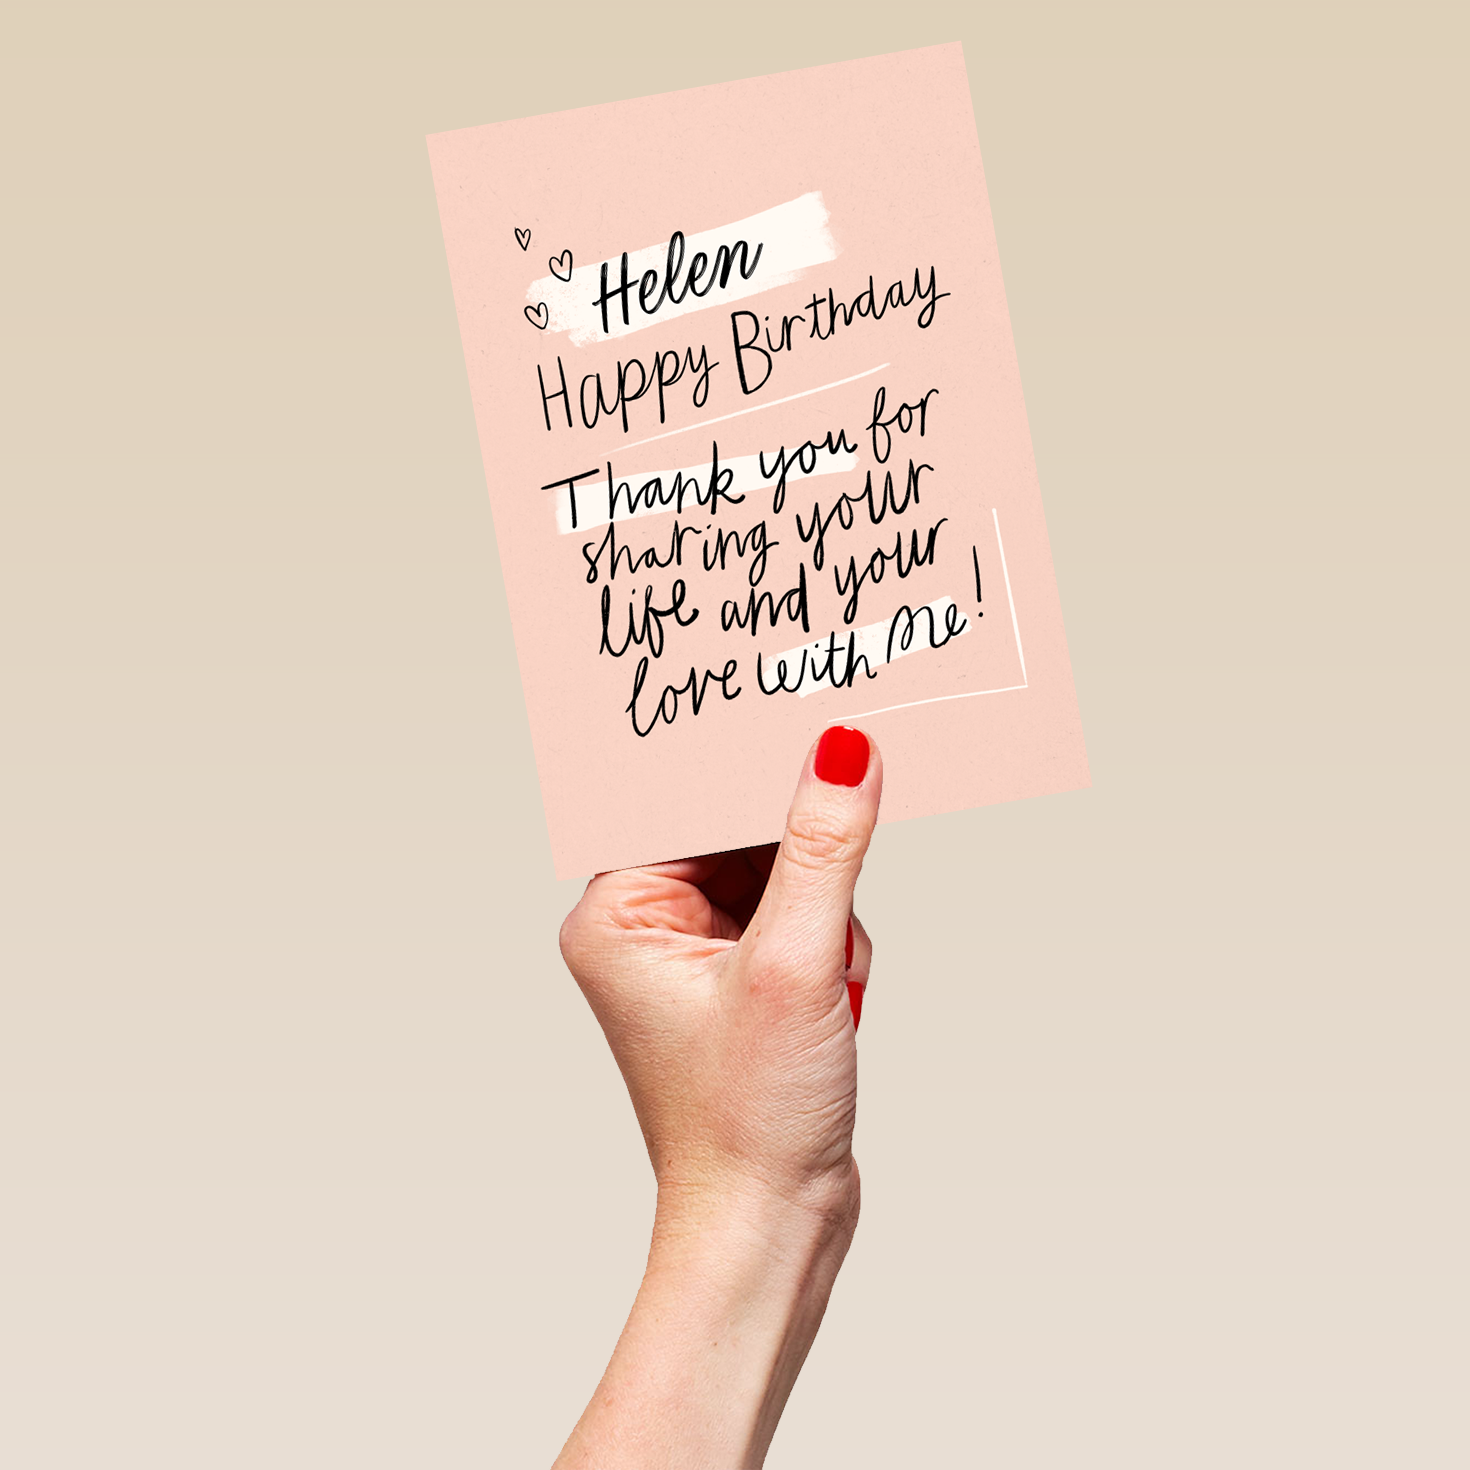 Helen
Happy Birthday
Thank you for
sharing your
life and your
love with Me!